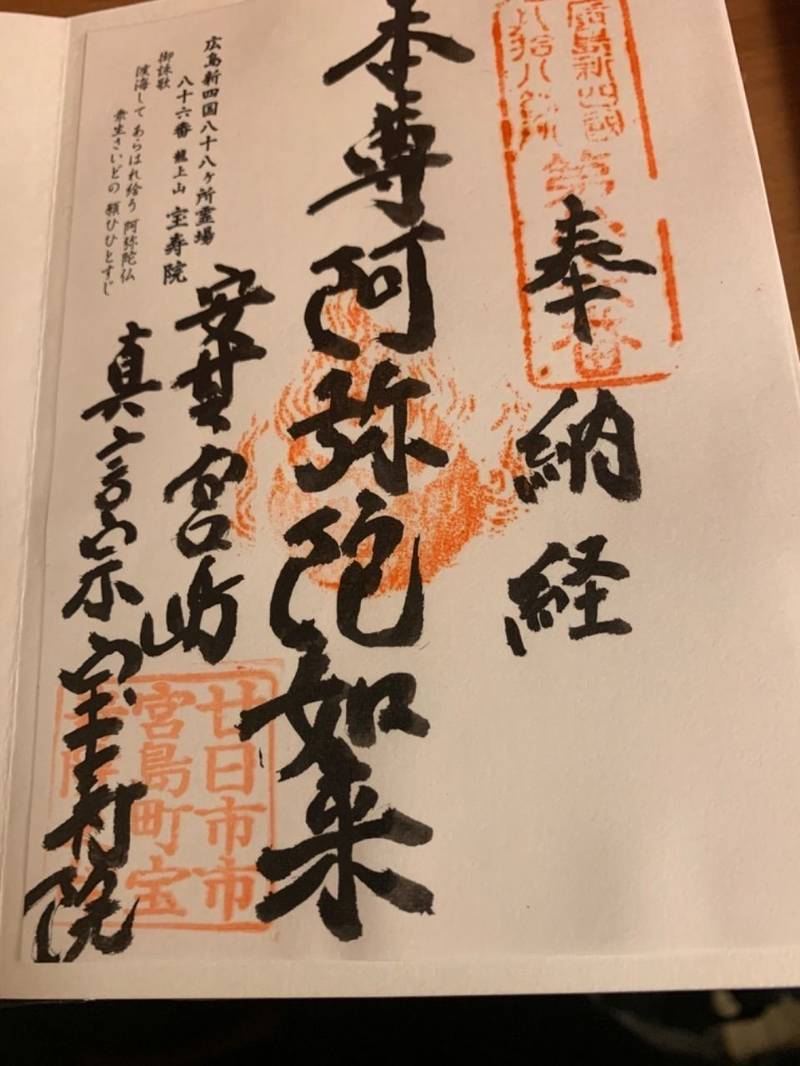 廣島新四國
奉納経
本尊阿弥陀如来
広島新四国八十八ヶ所霊場
八十六番 龍上山 宝寿院
御詠歌
渡海して あらはれ給う 阿弥陀仏
衆生さいどの 願ひひとすじ
安芸宮嶋
真言宗宝寿院
廿日市市
宮島町宝